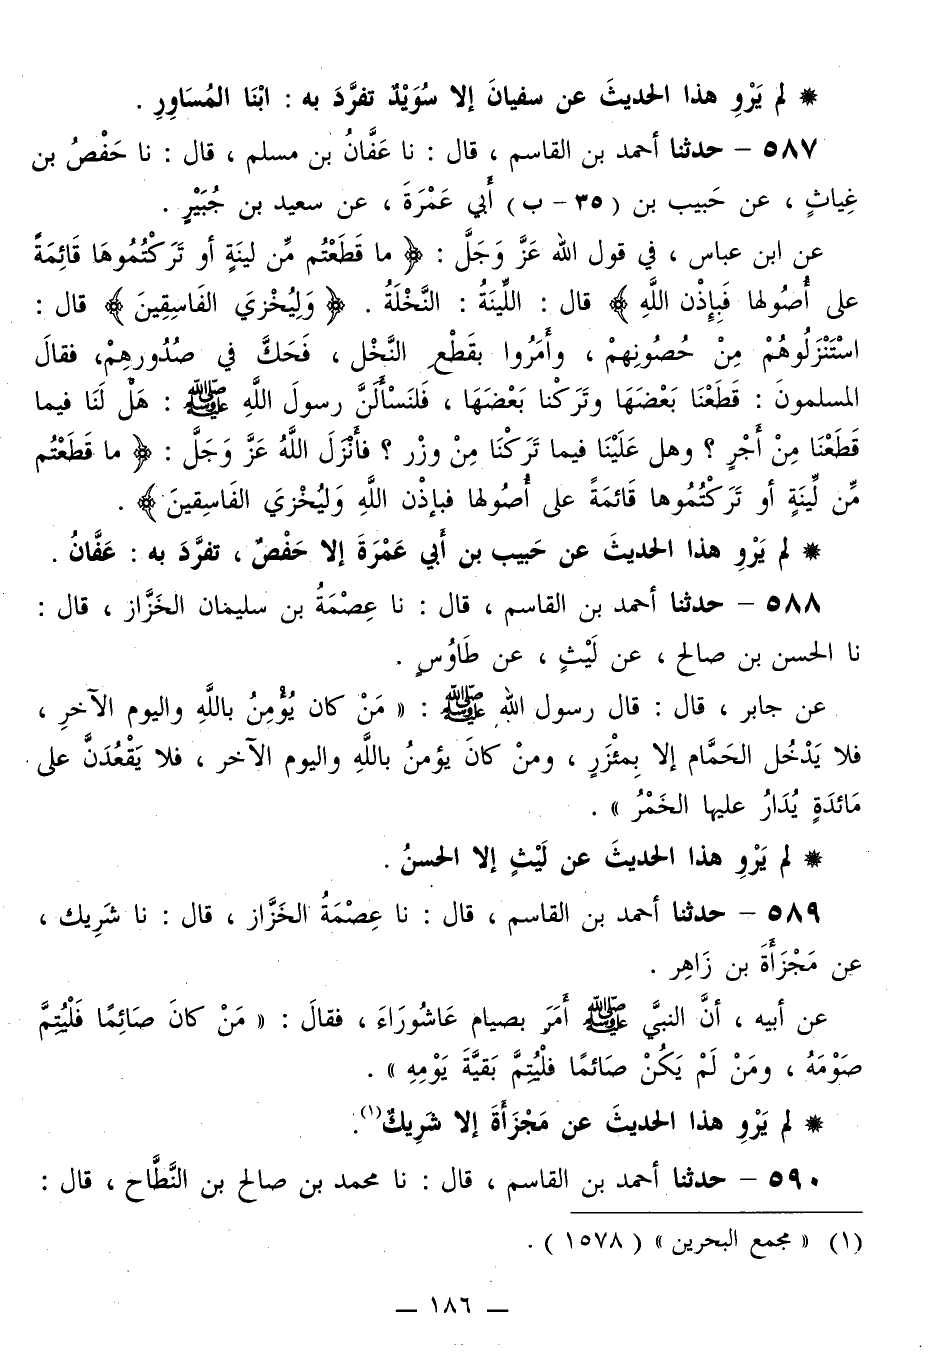 * لم يَرْوِ هذا الحديثَ عن سفيانَ إلا سُوَيْدٌ تفرَّدَ به : ابْنَا المُسَاوِرِ .
٥٨٧ – حدثنا أحمد بن القاسم ، قال : نا عَفَّانُ بن مسلم ، قال : نا حَفْصُ بن
غِياثٍ ، عن حَبيب بن ( ٣٥ – ب ) أَبي عَمْرَةَ ، عن سعيد بن جُبَيْرٍ .
عن ابن عباس ، في قول الله عَزَّ وَجَلَّ : ﴿ ما قَطَعْتُم مِّن لينَةٍ أو تَرَكْتُمُوهَا قَائِمَةً
على أُصُولها فَبِإِذْن اللَّهِ ﴾ قال : اللِّينَةُ : النَّخْلَةُ . ﴿ وَلِيُخْزيَ الفَاسِقِينَ ﴾ قال :
اسْتَنْزَلُوهُمْ مِنْ حُصُونِهِمْ ، وأَمَرُوا بقَطْعِ النَّخْل ، فَحَكَّ في صُدُورهِمْ، فقالَ
المسلمونَ : قَطَعْنَا بَعْضَهَا وتَرَكْنا بَعْضَهَا ، فَلنَسْأَلَنَّ رسولَ اللَّهِ ﷺ : هَلْ لَنَا فيما
قَطَعْنَا مِنْ أَجْرٍ ؟ وهل عَلَيْنَا فيما تَرَكْنَا مِنْ وزْر ؟ فأَنْزَلَ اللَّهُ عَزَّ وَجَلَّ : ﴿ ما قَطَعْتُم
مِّن لِّينَةٍ أو تَرَكْتُمُوها قَائمَةً على أُصُولها فبإذْن اللَّهِ وَليُخْزيَ الفَاسِقينَ ﴾ .
* لم يَرْوِ هذا الحديثَ عن حَبيب بن أَبي عَمْرَةَ إلا حَفْصٌ ، تفرَّدَ به : عَفَّانُ .
٥٨٨ – حدثنا أحمد بن القاسم ، قال : نا عِصْمَةُ بن سليمان الخَزَّاز ، قال :
نا الحسن بن صالح ، عن لَيْثٍ ، عن طَاوُسٍ .
عن جابر ، قال : قال رسول الله ﷺ : « مَنْ كان يُؤْمِنُ باللَّهِ واليوم الآخرِ ،
فلا يَدْخُل الحَمَّام إلا بِمئْزَرٍ ، ومنْ كانَ يؤمنُ باللَّهِ واليوم الآخر ، فلا يَقْعُدَنَّ على
مَائدَةٍ يُدَارُ عليها الخَمْرُ » .
* لم يَرْوِ هذا الحديثَ عن لَيْثٍ إلا الحسنُ .
٥٨٩ – حدثنا أحمد بن القاسم ، قال : نا عِصْمَةُ الخَزَّاز ، قال : نا شَرِيك ،
عن مَجْزَأَةَ بن زَاهِر .
عن أبيه ، أنَّ النبيَّ ﷺ أَمَرَ بصيام عَاشُورَاءَ ، فقالَ : « مَنْ كانَ صَائِمًا فَلْيُتِمَّ
صَوْمَهُ ، ومَنْ لَمْ يَكُنْ صَائمًا فلْيُتِمَّ بَقيَّةَ يَوْمِهِ » .
* لم يَرْوِ هذا الحديثَ عن مَجْزَأَةَ إلا شَرِيكٌ(١).
٥٩٠ – حدثنا أحمد بن القاسم ، قال : نا محمد بن صالح بن النَّطَّاح ، قال :
(١) « مجمع البحرين » ( ١٥٧٨ ) .
– ١٨٦ –